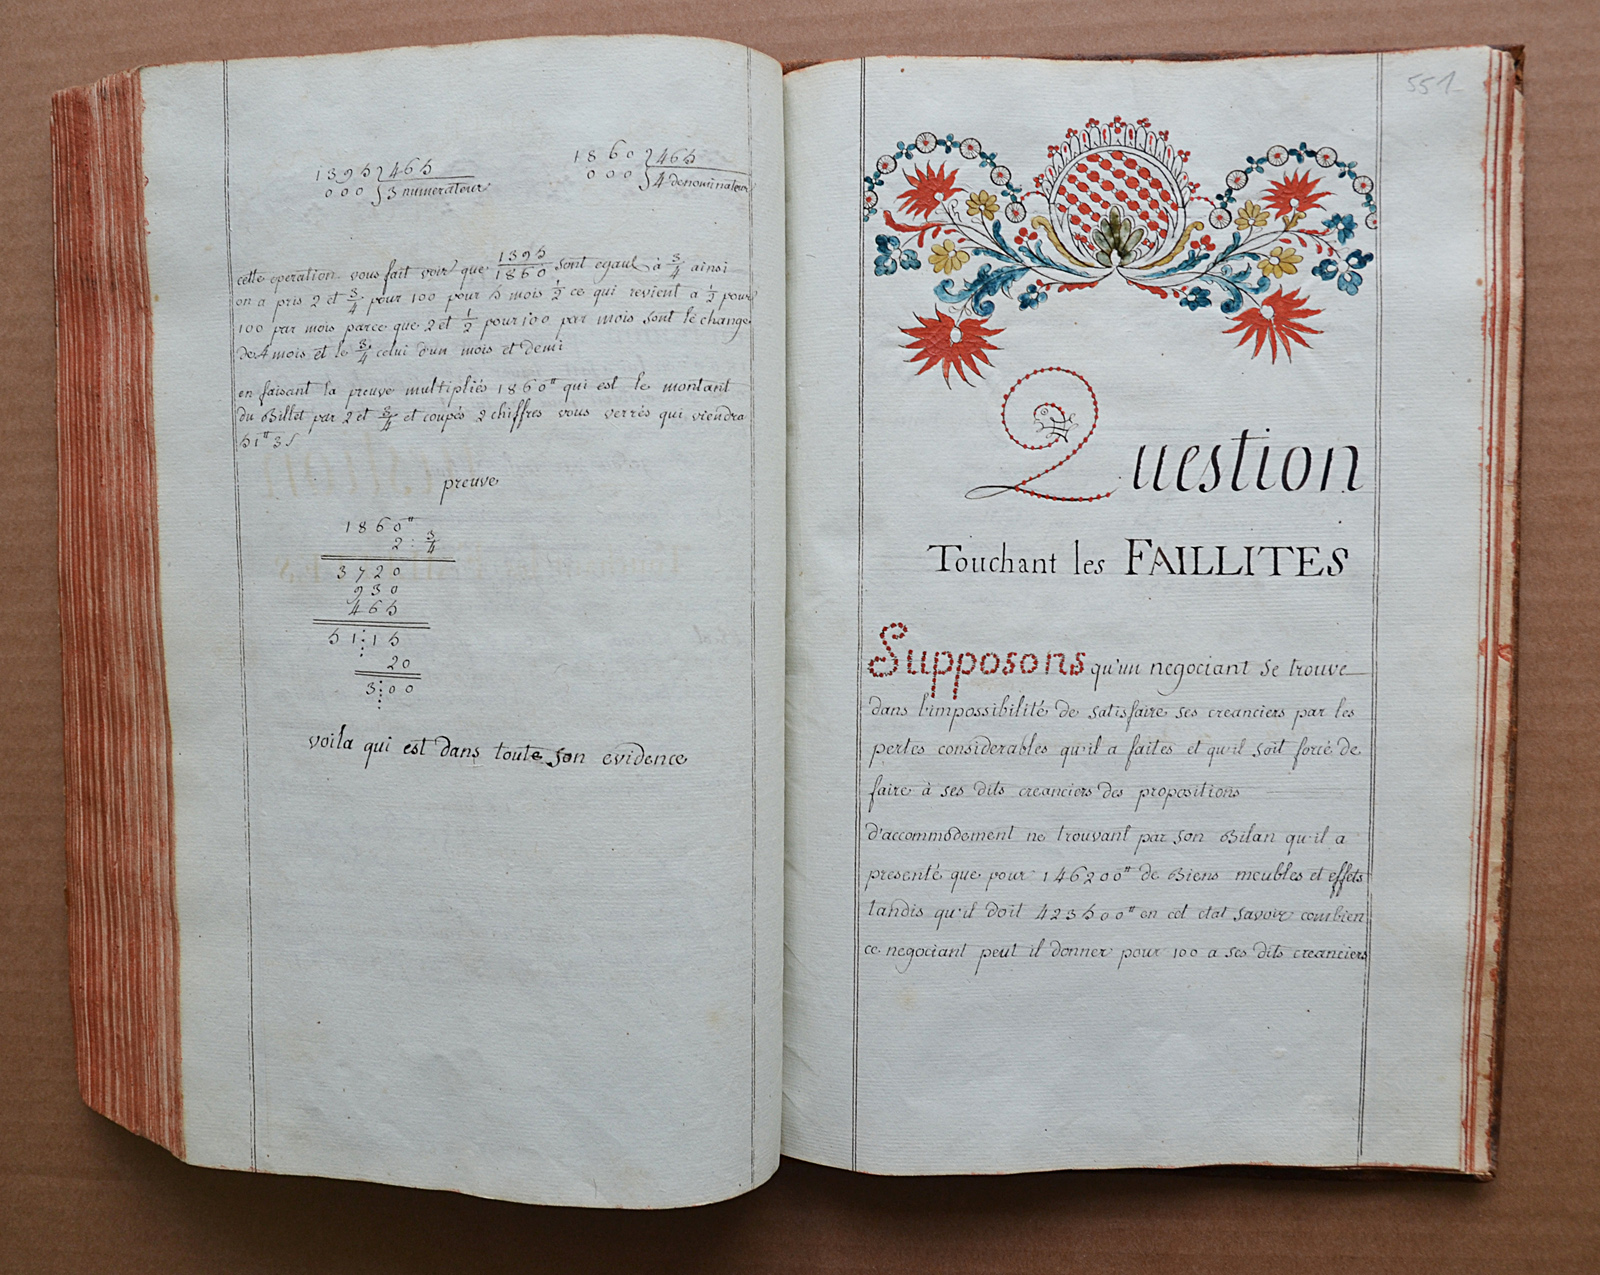 1395 465
000 3 numerateur
1860 465
000 4 denominateur
cette operation vous fait voir que 1395/1860 sont egaul à 3/4 ainsi
on a pris 2 et 3/4 pour 100 pour 5 mois 1/2 ce qui revient a 1/2 pour
100 par mois parce que 2 et 1/2 pour 100 par mois sont le change
de 4 mois et le 3/4 celui d'un mois et demi
en faisant la preuve multipliés 1860" qui est le montant
du Billet par 2 et 3/4 et coupés 2 chiffres vous verrés qui viendra
51" 3s
preuve
1860"
2 : 3/4
3720
930
465
51:15
20
3:00
voila qui est dans toute son evidence
551
Question
Touchant les FAILLITES
Supposons qu'un negociant se trouve
dans l'impossibilité de satisfaire ses creanciers par les
pertes considerables qu'il a faites et qu'il soit forcé de
faire à ses dits creanciers des propositions
d'accommodement ne trouvant par son Bilan qu'il a
presenté que pour 146200" de Biens meubles et effets
tandis qu'il doit 423500" en cet etat savoir combien
ce negociant peut il donner pour 100 a ses dits creanciers